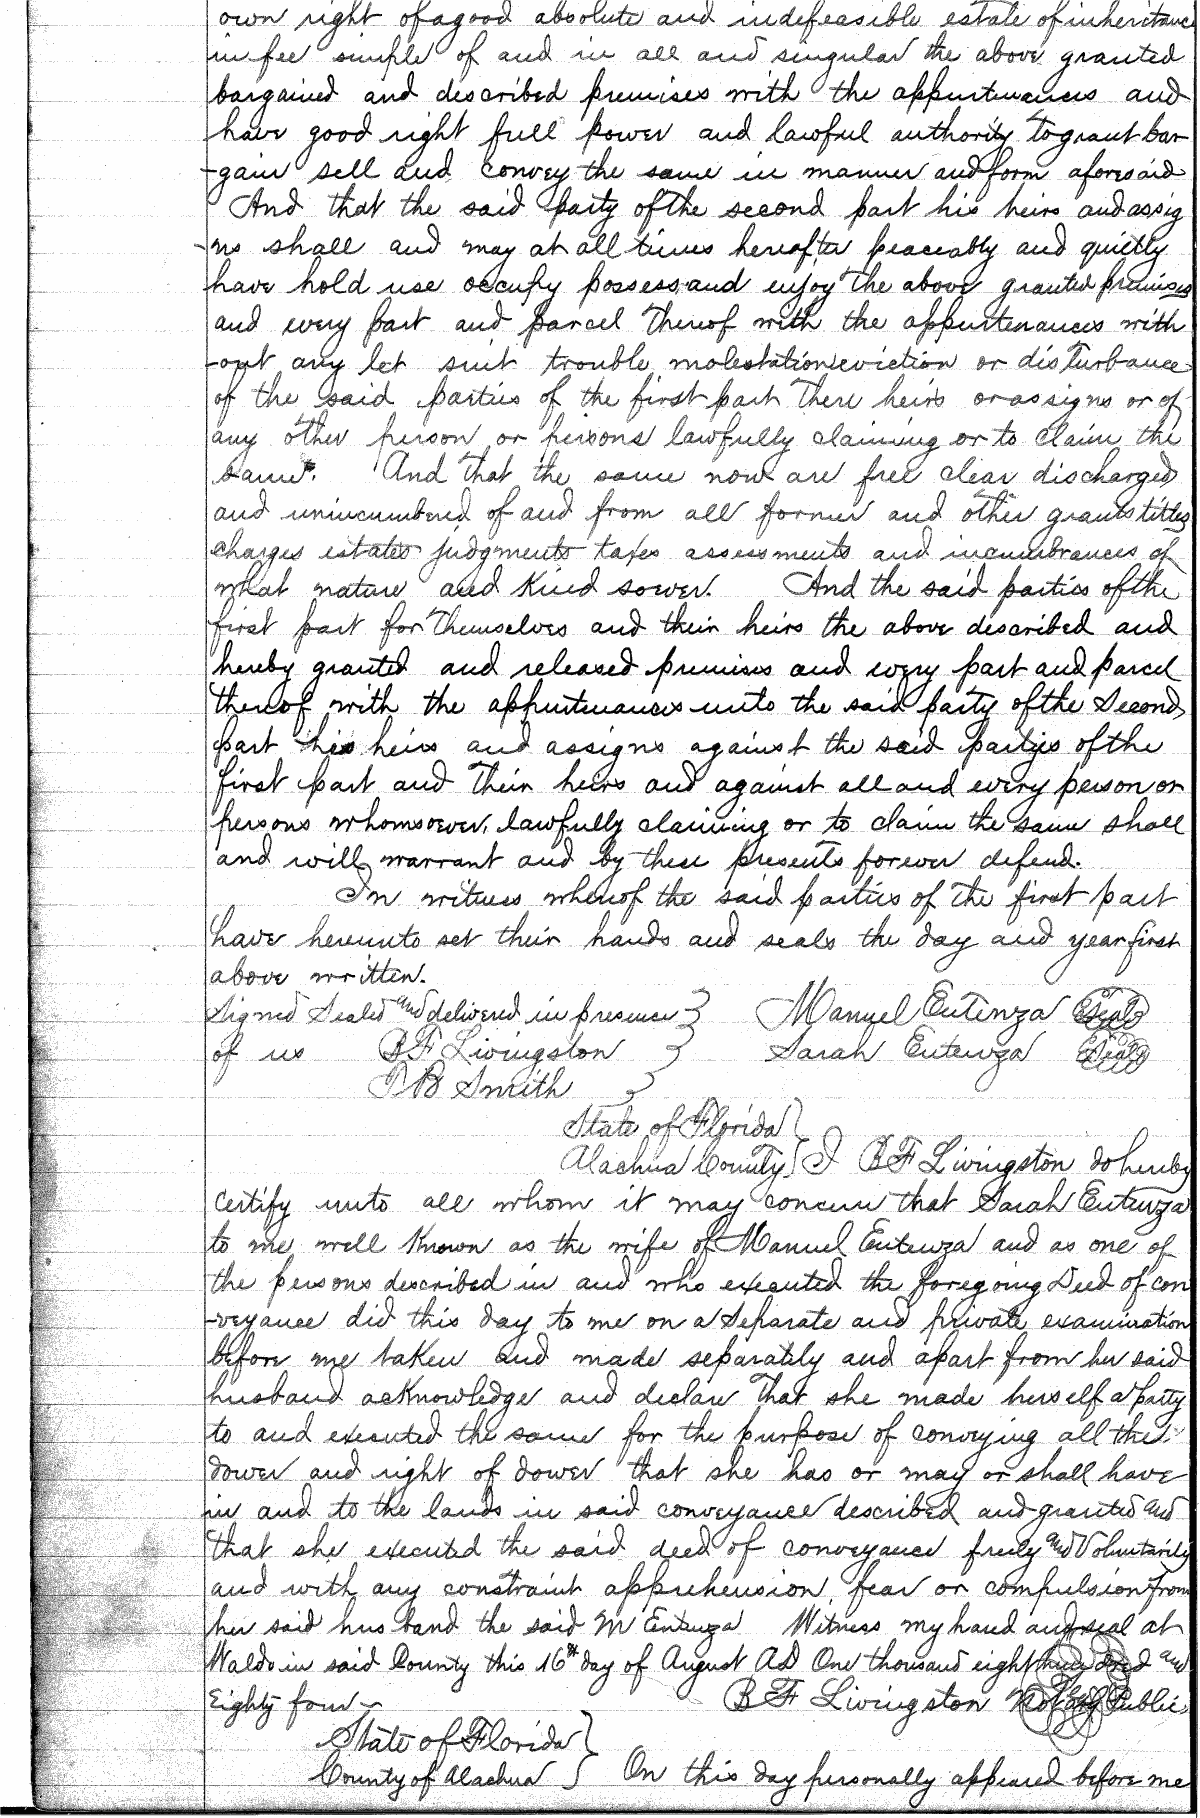 own right of a good absolute and indefeasible estate of inheritance
in fee simple of and in all and singular the above granted
bargained and described premises with the appurtenances and
have good right full power and lawful authority to grant bar
-gain sell and convey the same in manner and form aforesaid
And that the said party of the second part his heirs and assig
-ns shall and may at all times hereafter peaceably and quietly
have hold use occupy possess and enjoy the above granted premises
and every part and parcel thereof with the appurtenances with
-out any let suit trouble molestation eviction or disturbance
of the said parties of the first part there heirs or assigns or of
any other person or persons lawfully claiming or to claim the
same. And that the same now are free clear discharged
and unincumbered of and from all former and other grants titles
charges estates judgments taxes assessments and incumbrances of
what nature and kind soever. And the said parties of the
first part for themselves and their heirs the above described and
hereby granted and released premises and every part and parcel
thereof with the appurtenances unto the said party of the Second
part his heirs and assigns against the said parties of the
first part and their heirs and against all and every person or
persons whomsoever, lawfully claiming or to claim the same shall
and will warrant and by these presents forever defend.
In witness whereof the said parties of the first part
have hereunto set their hands and seals the day and year first
above written.
Signed Sealed and delivered in presence } Manuel Entenza Seal
of us B F Livingston } Sarah Entenza Seal
P B Smith }
State of Florida }
Alachua County } I B F Livingston do hereby
certify unto all whom it may concern that Sarah Entenza
to me well known as the wife of Manuel Entenza and as one of
the persons described in and who executed the foregoing Deed of con
-veyance did this day to me on a separate and private examination
before me taken and made separately and apart from her said
husband acknowledge and declare that she made herself a party
to and executed the same for the purpose of conveying all the
dower and right of dower that she has or may or shall have
in and to the lands in said conveyance described and granted and
that she executed the said deed of conveyance freely and Voluntarily
and with any constraint apprehension, fear or compulsion from
her said husband the said M Entenza Witness my hand and seal at
Waldo in said County this 16th day of August AD One thousand eight hundred and
Eighty four B F Livingston Notary Public
State of Florida }
County of Alachua } On this day personally appeared before me